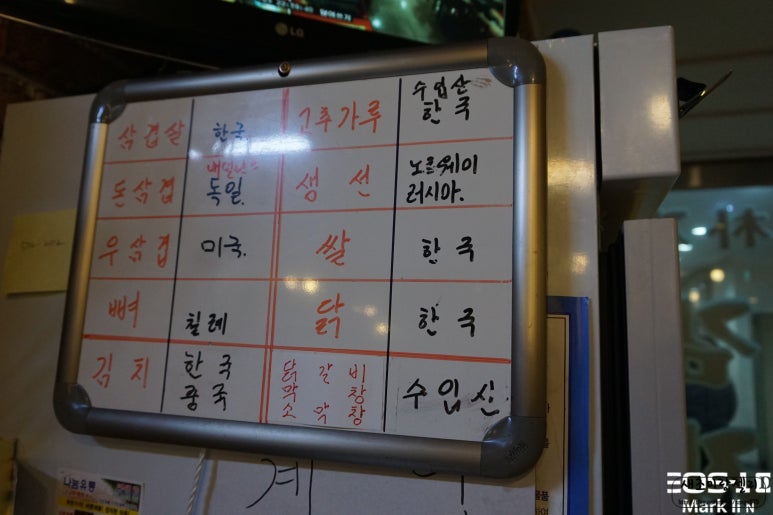 LG
삼겹살 한국 고추가루 수입산 한국
돈삼겹 독일. 생선 노르웨이 러시아.
우삼겹 미국. 쌀 한국
뼈 칠레 닭 한국
김치 한국 중국 닭갈비 막창 소막창 수입산.
계
나눔유통
Mark II N